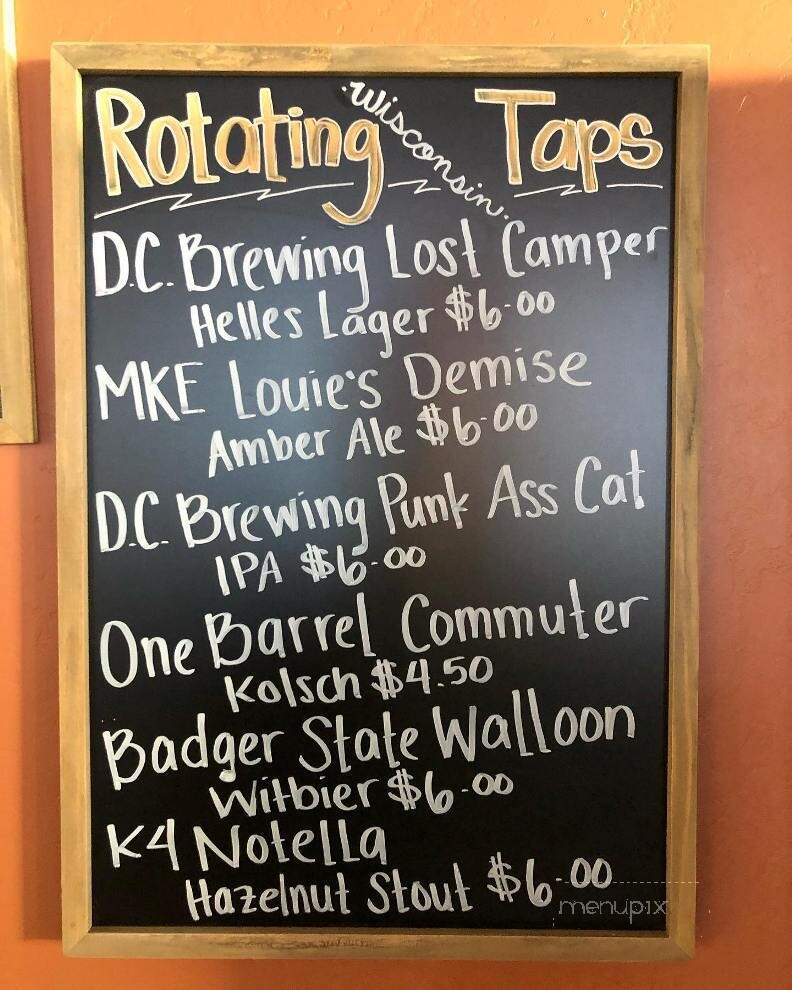 Rotating Wisconsin Taps
D.C. Brewing Lost Camper
Helles Lager $6.00
MKE Louie's Demise
Amber Ale $6.00
D.C. Brewing Punk Ass Cat
IPA $6.00
One Barrel Commuter
Kolsch $4.50
Badger State Walloon
Witbier $6.00
K4 Notella
Hazelnut Stout $6.00
menupix